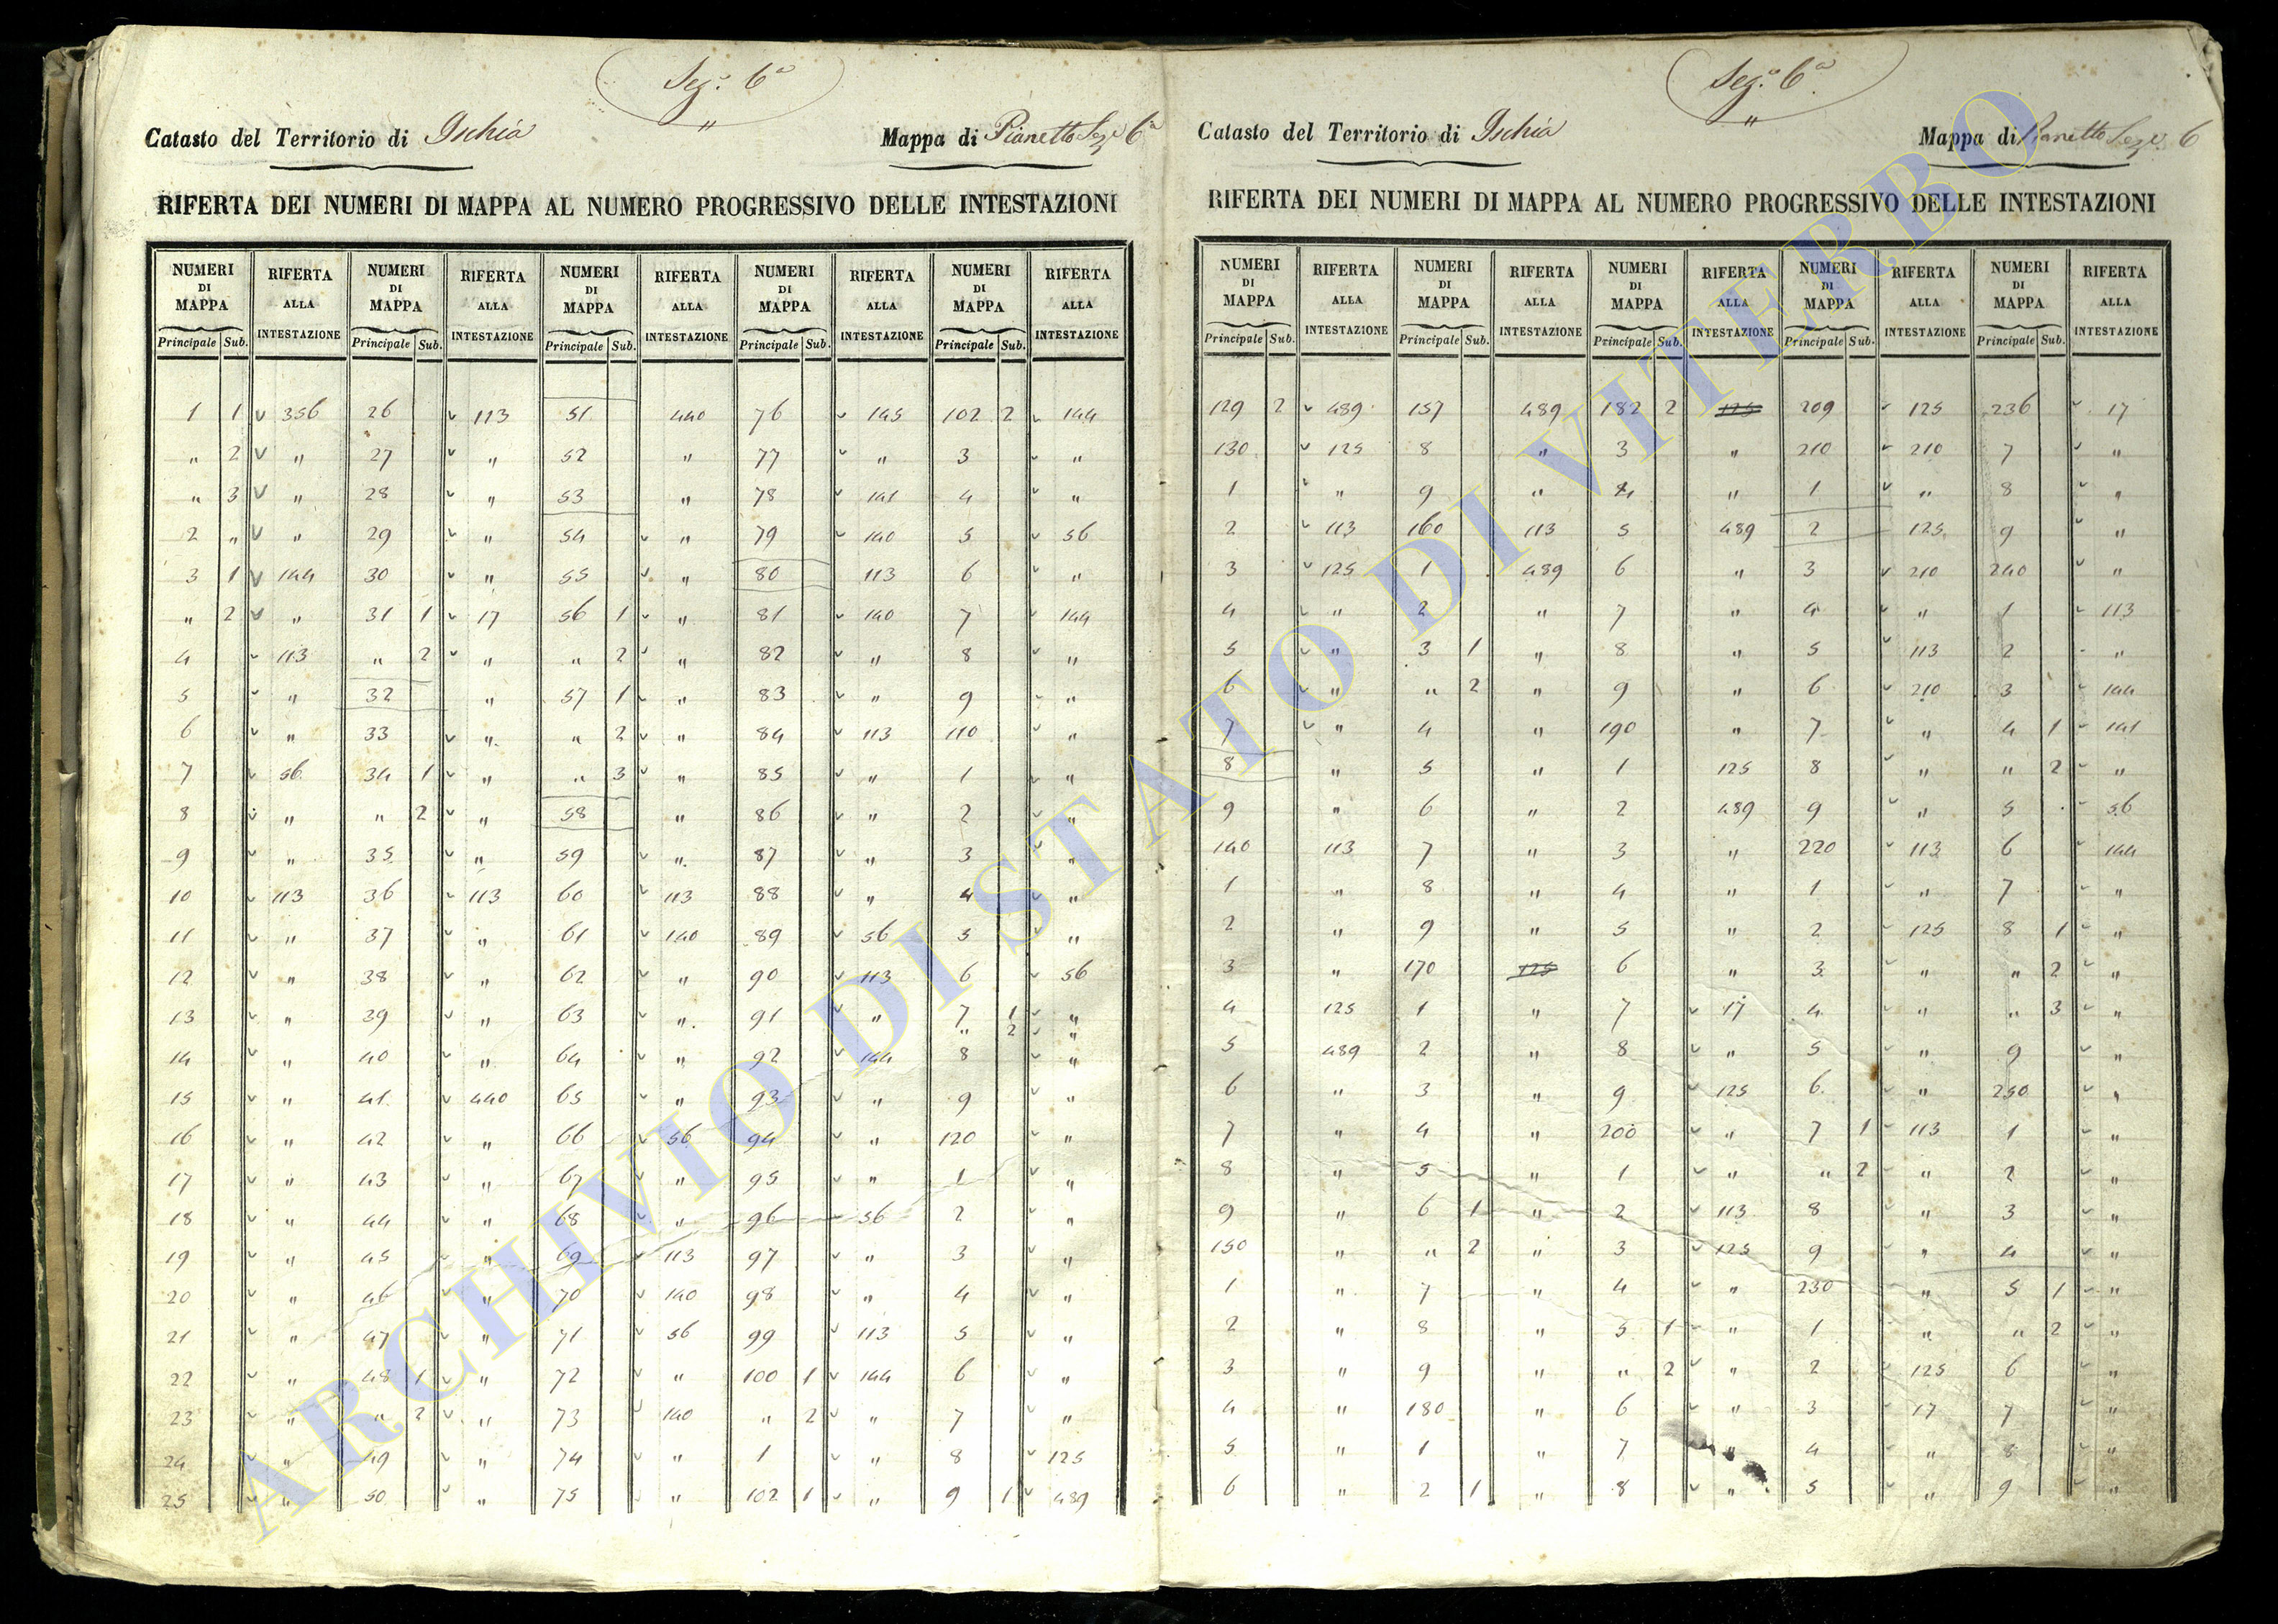 Sez. 6a
Catasto del Territorio di Ischia Mappa di Pianetto Seze 6a
RIFERTA DEI NUMERI DI MAPPA AL NUMERO PROGRESSIVO DELLE INTESTAZIONI
NUMERI RIFERTA NUMERI RIFERTA NUMERI RIFERTA NUMERI RIFERTA NUMERI RIFERTA
DI ALLA DI ALLA DI ALLA DI ALLA DI ALLA
MAPPA INTESTAZIONE MAPPA INTESTAZIONE MAPPA INTESTAZIONE MAPPA INTESTAZIONE MAPPA INTESTAZIONE
Principale Sub. Principale Sub. Principale Sub. Principale Sub. Principale Sub.
1 1 356 26 113 51 440 76 145 102 2 144
" 2 " 27 " 52 " 77 " 3 "
" 3 " 28 " 53 " 78 141 4 "
2 " " 29 " 54 " 79 140 5 56
3 1 144 30 " 55 " 80 113 6 "
" 2 " 31 1 17 56 1 " 81 140 7 144
4 113 " 2 " " 2 " 82 " 8 "
5 " 32 " 57 1 " 83 " 9 "
6 " 33 " " 2 " 84 113 110 "
7 56 34 1 " " 3 " 85 " 1 "
8 " " 2 " 58 " 86 " 2 "
9 " 35 " 59 " 87 " 3 "
10 113 36 113 60 113 88 " 4 "
11 " 37 " 61 140 89 56 5 "
12 " 38 " 62 " 90 113 6 56
13 " 39 " 63 " 91 " 7 1 "
" 2 "
14 " 40 " 64 " 92 144 8 "
15 " 41 440 65 " 93 " 9 "
16 " 42 " 66 56 94 " 120 "
17 " 43 " 67 " 95 " 1 "
18 " 44 " 68 " 96 56 2 "
19 " 45 " 69 113 97 " 3 "
20 " 46 " 70 140 98 " 4 "
21 " 47 " 71 56 99 113 5 "
22 " 48 1 " 72 " 100 1 144 6 "
23 " " 2 " 73 140 " 2 " 7 "
24 " 49 " 74 " 1 " 8 125
25 " 50 " 75 " 102 1 " 9 1 489
Sez. 6a
Catasto del Territorio di Ischia Mappa di Pianetto Seze. 6
RIFERTA DEI NUMERI DI MAPPA AL NUMERO PROGRESSIVO DELLE INTESTAZIONI
NUMERI RIFERTA NUMERI RIFERTA NUMERI RIFERTA NUMERI RIFERTA NUMERI RIFERTA
DI ALLA DI ALLA DI ALLA DI ALLA DI ALLA
MAPPA INTESTAZIONE MAPPA INTESTAZIONE MAPPA INTESTAZIONE MAPPA INTESTAZIONE MAPPA INTESTAZIONE
Principale Sub. Principale Sub. Principale Sub. Principale Sub. Principale Sub.
129 2 489 157 489 182 2 125 209 125 236 17
130 125 8 " 3 " 210 210 7 "
1 " 9 " 4 " 1 " 8 "
2 113 160 113 5 489 2 125 9 "
3 125 1 489 6 " 3 210 240 "
4 " 2 " 7 " 4 " 1 113
5 " 3 1 " 8 " 5 113 2 "
6 " " 2 " 9 " 6 210 3 144
7 " 4 " 190 " 7 " 4 1 141
8 5 " 1 125 8 " " 2 "
9 " 6 " 2 489 9 " 5 56
140 113 7 " 3 " 220 113 6 144
1 " 8 " 4 " 1 " 7 "
2 " 9 " 5 " 2 125 8 1 "
3 " 170 125 6 " 3 " " 2 "
4 125 1 " 7 17 4 " " 3 "
5 489 2 " 8 " 5 " 9 "
6 " 3 " 9 125 6 " 250 "
7 " 4 " 200 " 7 1 113 1 "
8 " 5 " 1 " " 2 " 2 "
9 " 6 1 " 2 113 8 " 3 "
150 " " 2 " 3 125 9 " 4 "
1 " 7 " 4 " 230 " 5 1 "
2 " 8 " 5 1 " 1 " " 2 "
3 " 9 " " 2 " 2 125 6 "
4 " 180 " 6 " 3 17 7 "
5 " 1 " 7 " 4 " 8 "
6 " 2 1 " 8 " 5 " 9 "
ARCHIVIO DI STATO DI VITERBO